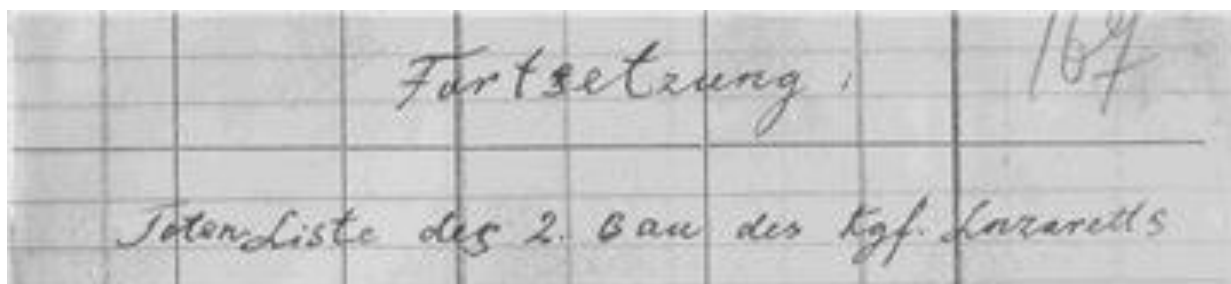 Fortsetzung: 167
Toten-Liste des 2. Bau des Kgf. Lazaretts